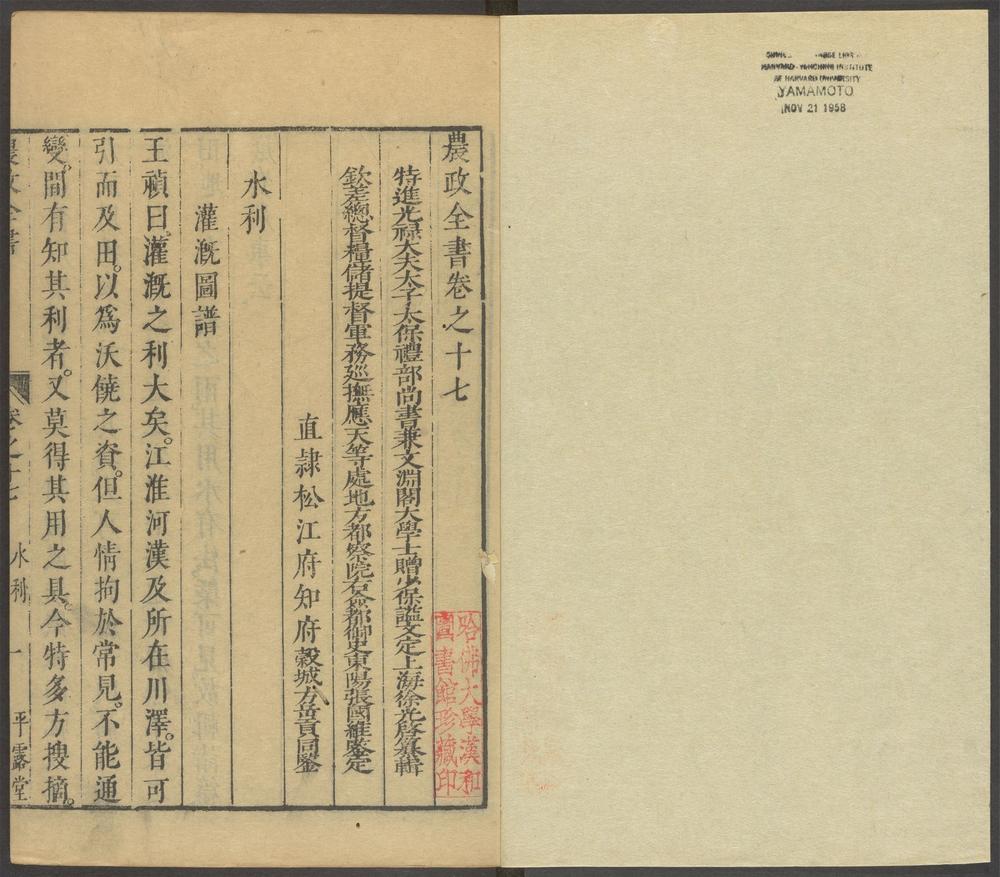 HARVARD-YENCHING INSTITUTE
AT HARVARD UNIVERSITY
YAMAMOTO
NOV 21 1958
農政全書卷之十七
特進光祿大夫太子太保禮部尚書兼文淵閣大學士贈少保謚文定上海徐光啓纂輯
欽差總督糧儲提督軍務巡撫應天等處地方都察院右僉都御史東陽張國維鑒定
直隸松江府知府穀城方岳貢同鑒
水利
灌漑圖譜
王禎曰灌漑之利大矣。江淮河漢及所在川澤。皆可
引而及田。以爲沃饒之資。但人情拘於常見。不能通
變。間有知其利者。又莫得其用之具。今特多方搜摘。
農政全書 卷之十七 水利 一 平露堂
哈佛大學漢和
圖書館珍藏印